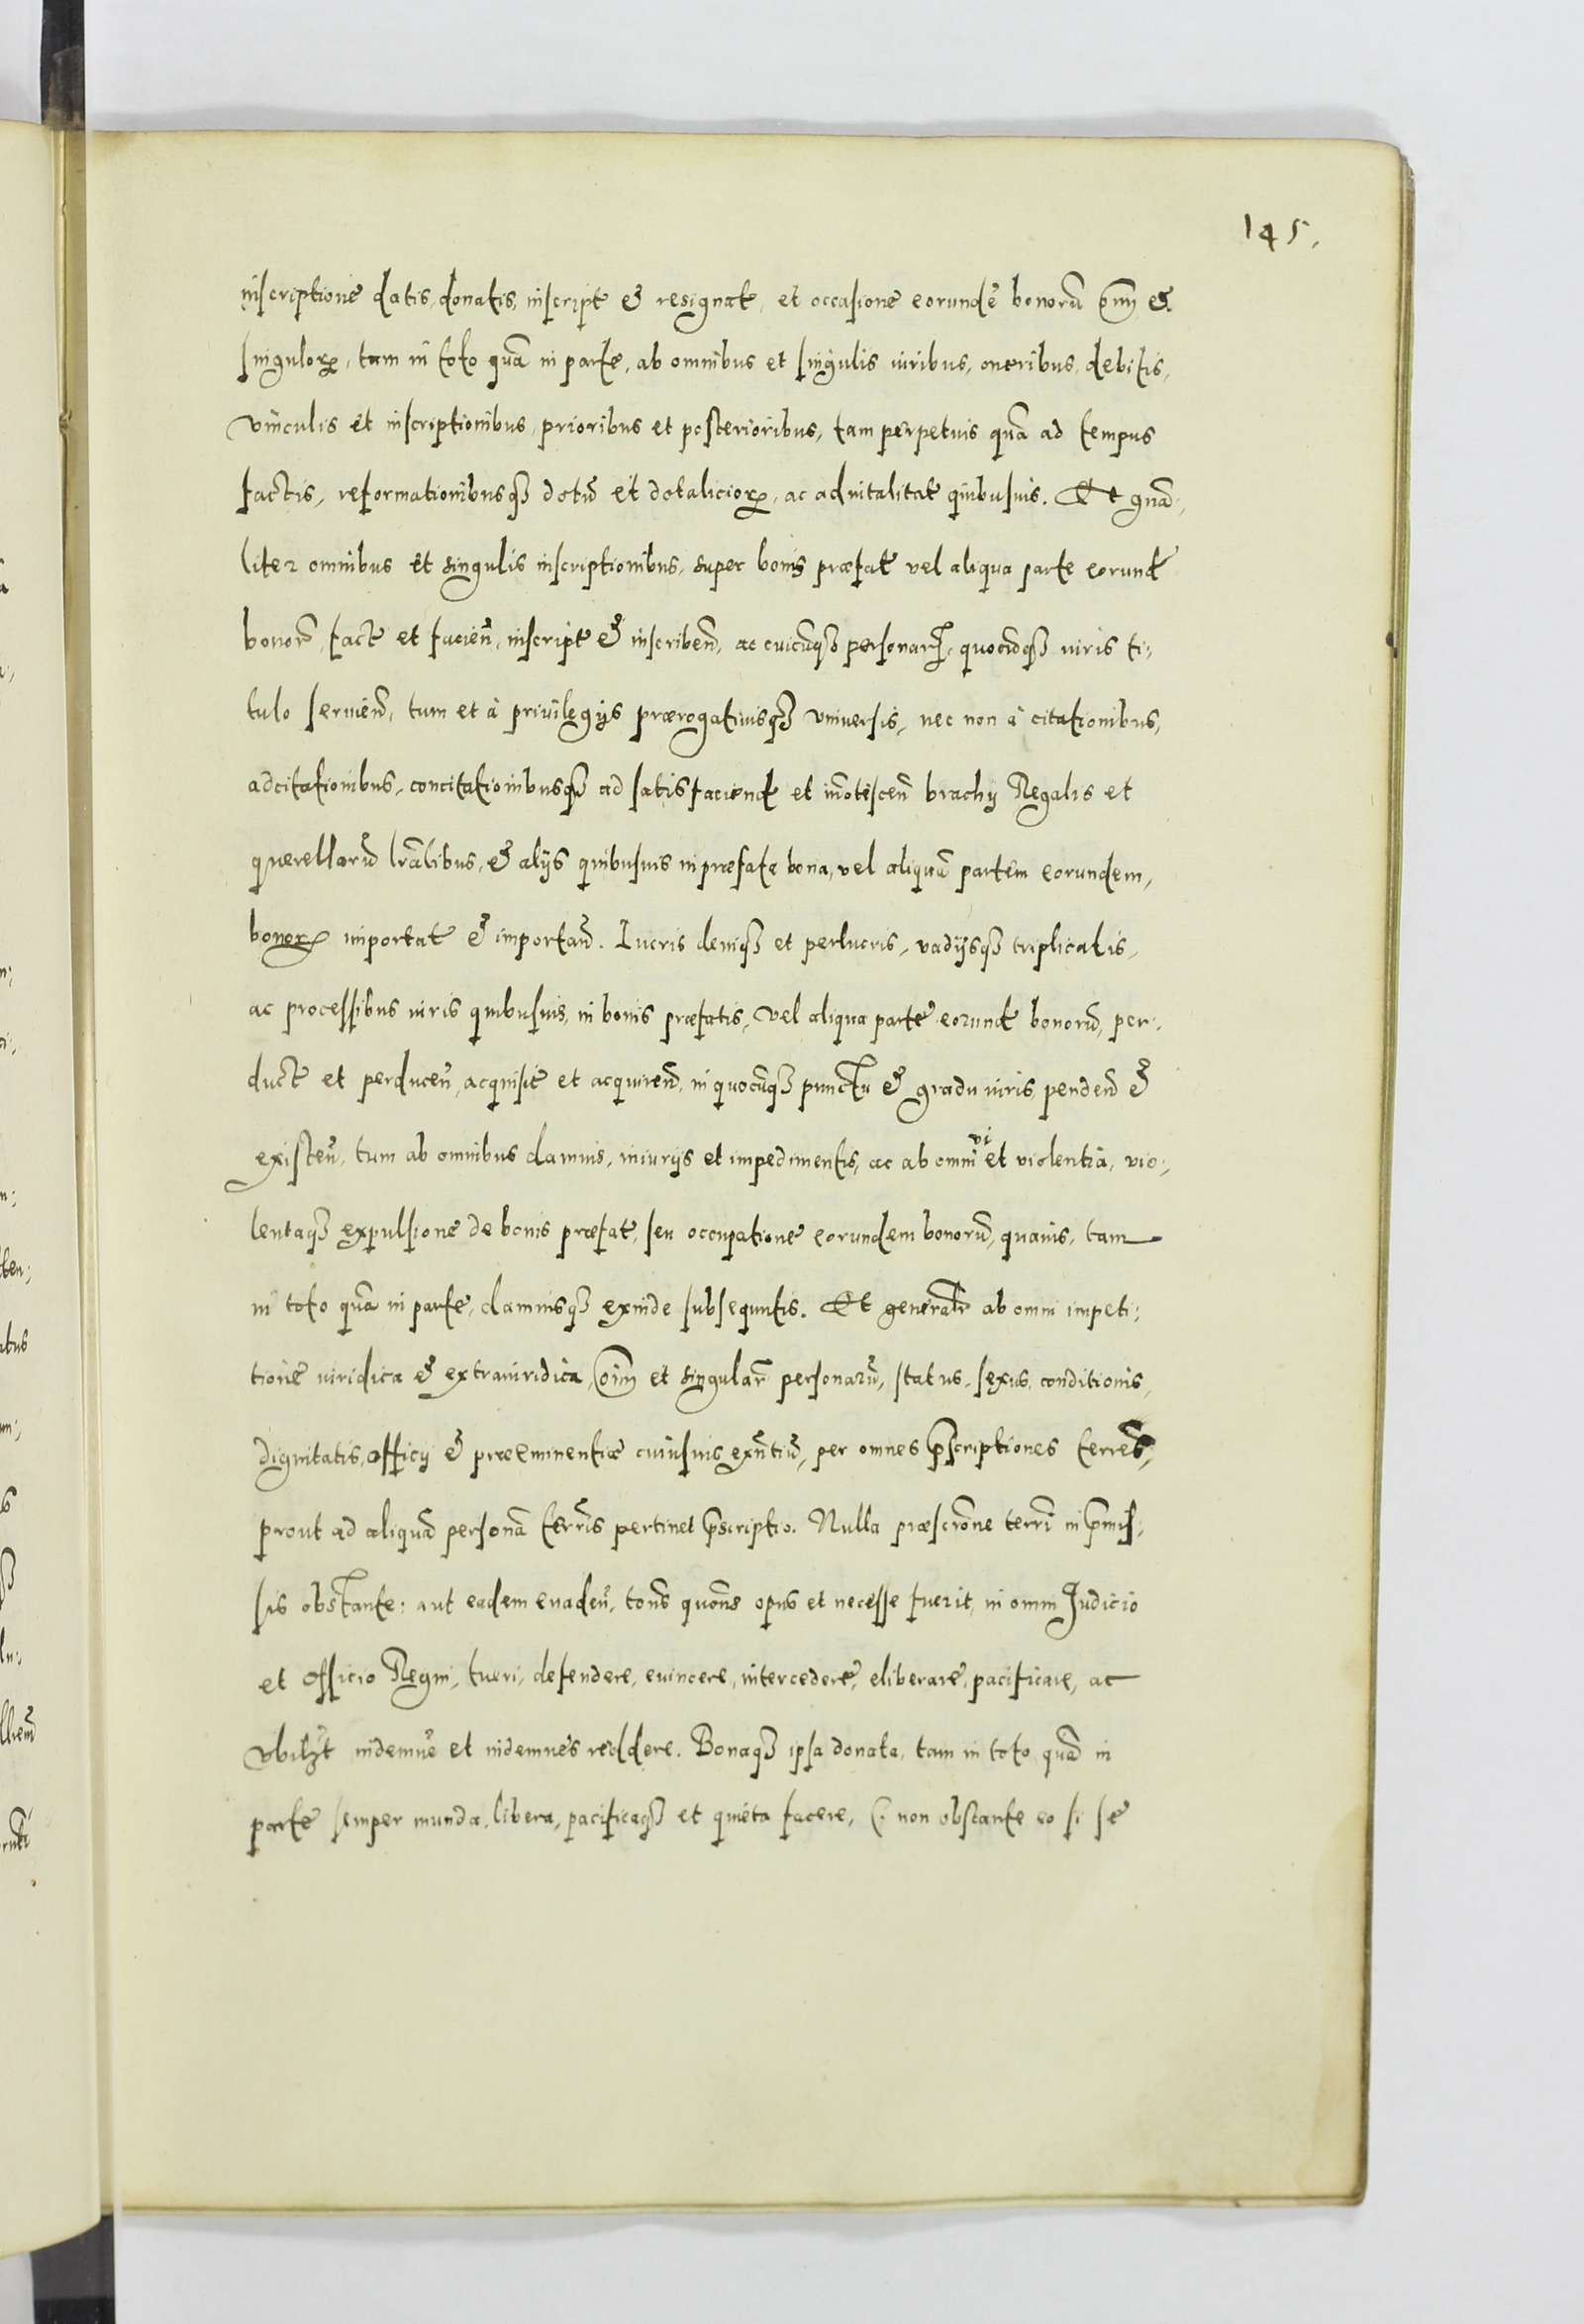 145.
inscriptione datis, donatis, inscript et resignat, et occasione eorundē bonorū oīm et
singulorꝝ, tam in toto quā in parte, ab omnibus et singulis iuribus, oneribus, debitis,
vinculis et inscriptionibus, prioribus et posterioribus, tam perpetuis quā ad tempus
factis, reformationibusqꝫ dotiū et dotaliciorꝝ, ac aduitalitat quibusuis. Et gnā-
liter omnibus et singulis inscriptionibus, super bonis præfat vel aliqua parte eorund
bonorꝝ fact et facień, inscript et inscribeń, ac cuicūqꝫ personarꝝ, quocūqꝫ iuris ti-
tulo seruień, tum et à priuilegijs prærogatiuisqꝫ vniuersis, nec non à citationibus,
adcitationibus, concitationibusqꝫ ad satisfaciend et iñotesceń brachij Regalis et
querellarū lrālibus, et alijs quibusuis in præfata bona, vel aliquā partem eorundem
bonorꝝ importat et importań. Lucris deniqꝫ et perlucris, vadijsqꝫ triplicatis,
ac processibus iuris quibusuis, in bonis præfatis, vel aliqua parte eorund bonorū, per-
duct et perduceń, acquisit et acquireń, in quocūqꝫ punctu et gradu iuris pendeń et
existeń, tum ab omnibus damnis, iniurijs et impedimentis, ac ab omni vi et violentia, vio-
lentaqꝫ expulsione de bonis præfat, seu occupatione eorundem bonorū, quauis, tam
in toto quā in parte, damnisqꝫ exinde subsequntis. Et generalr ab omni impeti-
tione iuridica et extraiuridica, oīm et singularꝝ personarū, status, sexus, conditionis,
dignitatis, officij et præeminentiæ cuiusuis exn̄tiū, per omnes p̄scriptiones terrēs,
prout ad aliquā personā terr̄is pertinet p̄scriptio. Nulla præscrōne terrī in p̄mis-
sis obstante: aut eadem euadeń, toñs quoñs opus et necesse fuerit, in omni Judicio
et Officio Regni, tueri, defendere, euincere, intercedere, eliberare, pacificare, ac
vbilꝫt indemnē et indemnes reddere. Bonaqꝫ ipsa donata, tam in toto quā in
parte semper munda, libera, pacificaqꝫ et quieta facere, (: non obstante eo si se